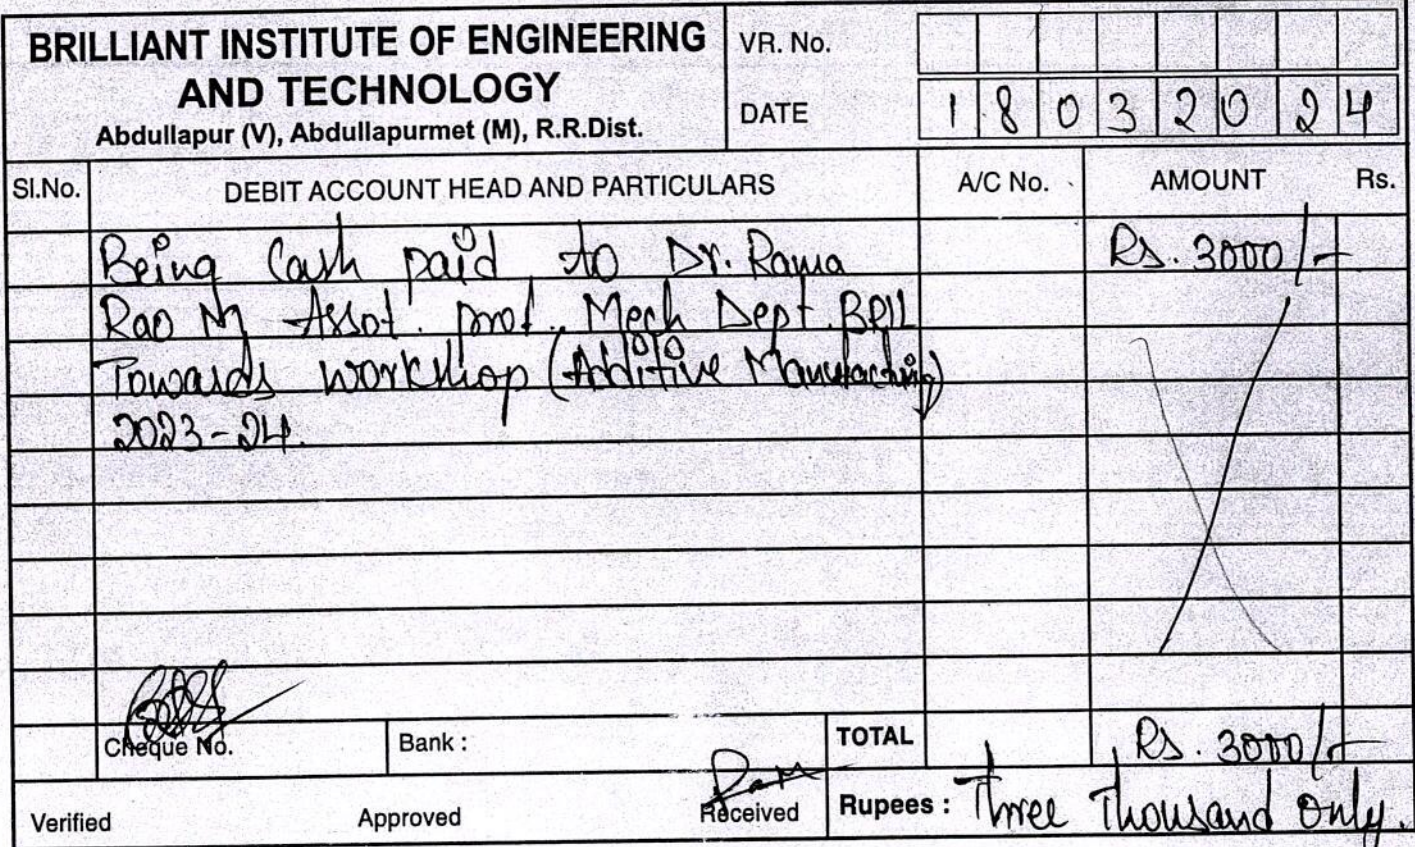 BRILLIANT INSTITUTE OF ENGINEERING
AND TECHNOLOGY
Abdullapur (V), Abdullapurmet (M), R.R.Dist.
VR. No.
DATE 18032024
Sl.No. DEBIT ACCOUNT HEAD AND PARTICULARS A/C No. AMOUNT Rs.
Being Cash paid to Dr. Rama Rs. 3000/-
Rao M Assot. prof. Mech Dept.
Towards workshop (Additive Manufacturing)
2023-24.
Cheque No. Bank : TOTAL Rs. 3000/-
Verified Approved Received Rupees : Three Thousand Only.